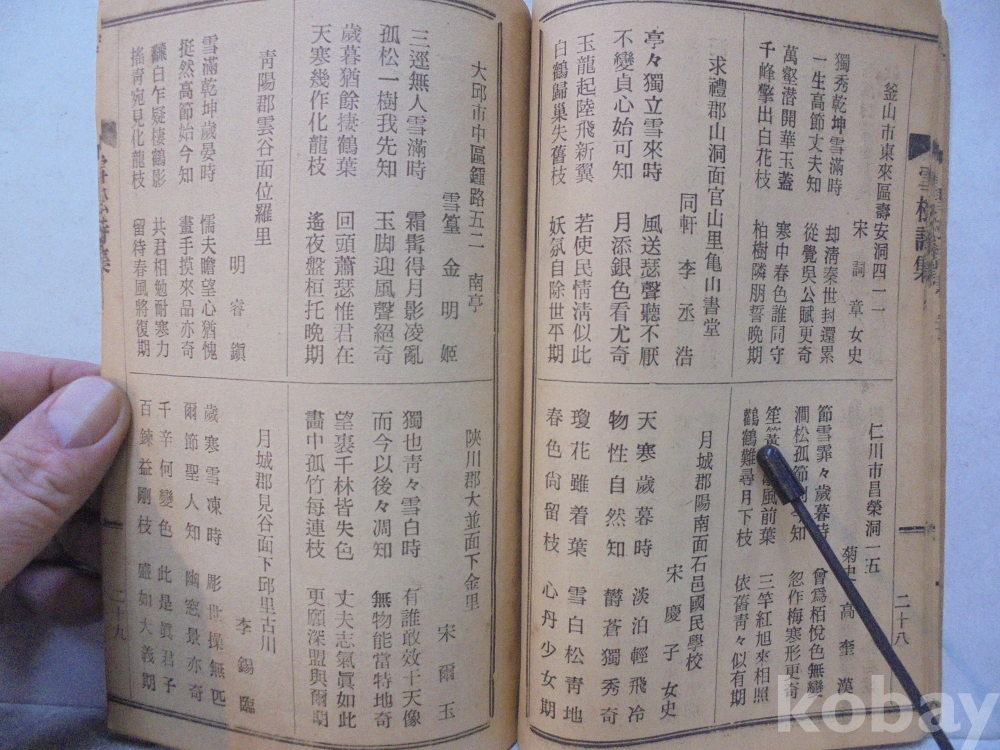 雪松詩集
二十八
釜山市東來區壽安洞四一二
宋 詞 章 女史
獨秀乾坤雪滿時 却淸秦世封還累
一生高節丈夫知 從覺吳公賦更奇
萬壑潛開華玉蓋 寒中春色誰同守
千峰擎出白花枝 柏樹隣朋誓晩期
求禮郡山洞面官山里亀山書堂
同軒 李 丞 浩
亭々獨立雪來時 風送瑟聲聽不厭
不變貞心始可知 月添銀色看尤奇
玉龍起陸飛新翼 若使民情淸似此
白鶴歸巢失舊枝 妖氛自除世平期
仁川市昌榮洞一五
菊史 高 奎 漢
節雪霏々歲暮時 曾爲栢悅色無變
澗松孤節 知 忽作梅寒形更奇
笙 風前葉 三竿紅旭來相照
鸛鶴難尋月下枝 依舊靑々似有期
月城郡陽南面石邑國民學校
宋 慶 子 女史
天寒歲暮時 淡泊輕飛冷
物性自然知 欝蒼獨秀奇
瓊花雖着葉 雪白松靑地
春色尙留枝 心丹少女期
大邱市中區鍾路五二 南亭
雪篁 金 明 姬
三逕無人雪滿時 霜髯得月影凌亂
孤松一樹我先知 玉脚迎風聲絕奇
歲暮猶餘捿鶴葉 回頭蕭瑟惟君在
天寒幾作化龍枝 遙夜盤桓托晩期
靑陽郡雲谷面位羅里
明 睿 鎭
雪滿乾坤歲晏時 懦夫瞻望心猶愧
挺然高節始今知 畫手摸來品亦奇
飜白乍疑棲鶴影 共君相勉耐寒力
搖靑宛見化龍枝 留待春風將復期
陜川郡大並面下金里
宋 爾 玉
獨也靑々雪白時 有誰敢效干天像
而今以後々凋知 無物能當特地奇
望裏千林皆失色 丈夫志氣眞如此
畵中孤竹每連枝 更願深盟與爾期
月城郡見谷面下邱里古川
李 錫 臨
歲寒雪凍時 彫世操無匹
爾節聖人知 幽窓景亦奇
千辛何變色 此是眞君子
百鍊益剛枝 盛如大義期
二十九
kobay